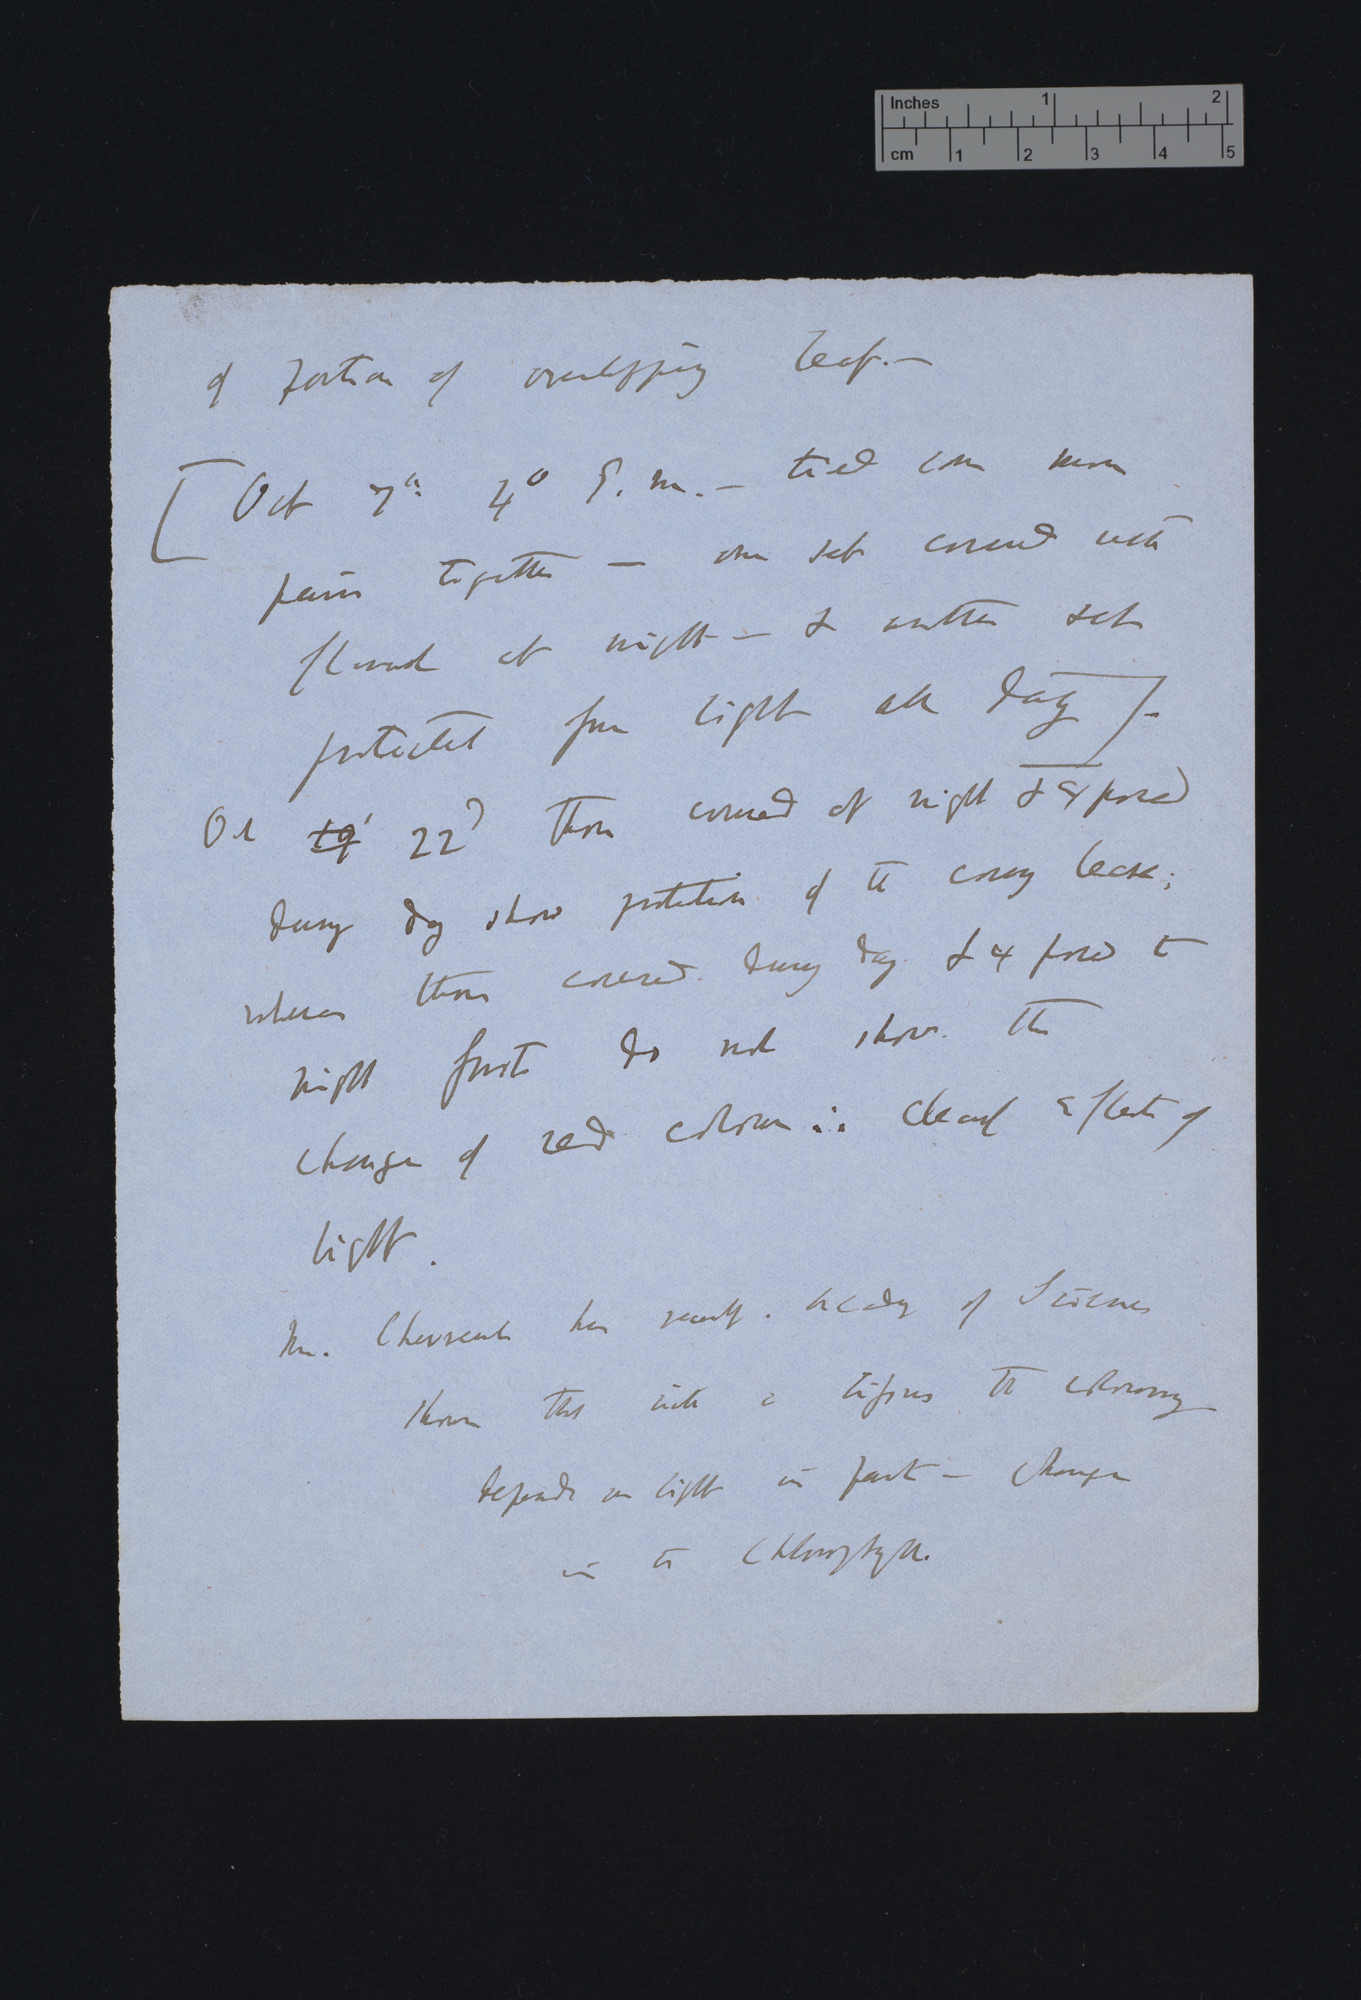 Inches 1 2
cm 1 2 3 4 5
of portion of overlapping leaf.—
[Oct 7th 4° P.m. — tied some more
pairs together — one set covered with
flannel at night — & another set
protected from light all day].
Oct 19' 22d those covered at night & exposed
during day show protection of the covering leaves;
whereas those covered during day & exposed to
night frosts do not show the
change of red colour ∴ clearly effects of
light.
has recently. Academy of Sciences
shown that with the colouring
depends on light in part — change
in to Chlorophyll.